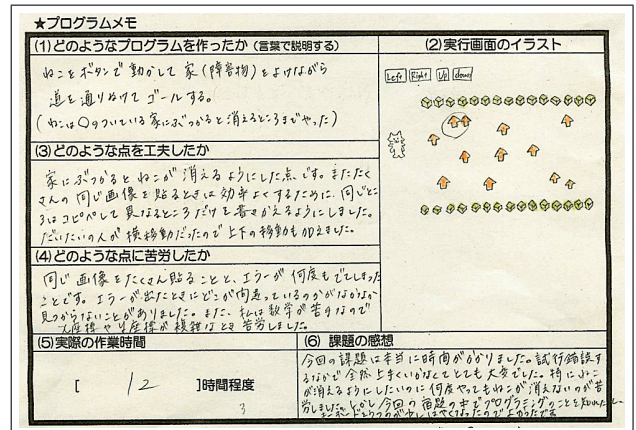 ★プログラムメモ
(1)どのようなプログラムを作ったか(言葉で説明する)
ねこをボタンで動かして家(障害物)をよけながら
道を通りぬけてゴールする。
(ねこは○のついている家にぶつかると消えるところまでやった)
(2)実行画面のイラスト
Left Right Up down
(3)どのような点を工夫したか
家にぶつかるとねこが消えるようにした点です。またたく
さんの同じ画像を貼るときは効率よくするために、同じとこ
ろはコピペして異なるところだけを書きかえるようにしました。
だいたいの人が横移動だったので上下の移動も加えました。
(4)どのような点に苦労したか
同じ画像をたくさん貼ることと、エラーが何度もでてしまった
ことです。エラーが出たときにどこが間違っているのかがなかなか
見つからないことがありました。また、私は数学が苦手なので
x座標やy座標が複雑なとき苦労しました。
(5)実際の作業時間
[ 12 ]時間程度
3
(6)課題の感想
今回の課題は本当に時間がかかりました。試行錯誤す
るなかで全然上手くいかなくてとても大変でした。特にねこ
が消えるようにしたいのに何度やってもねこが消えないのが苦
労しました。しかし今回の宿題の中でプログラミングのことを知れたし